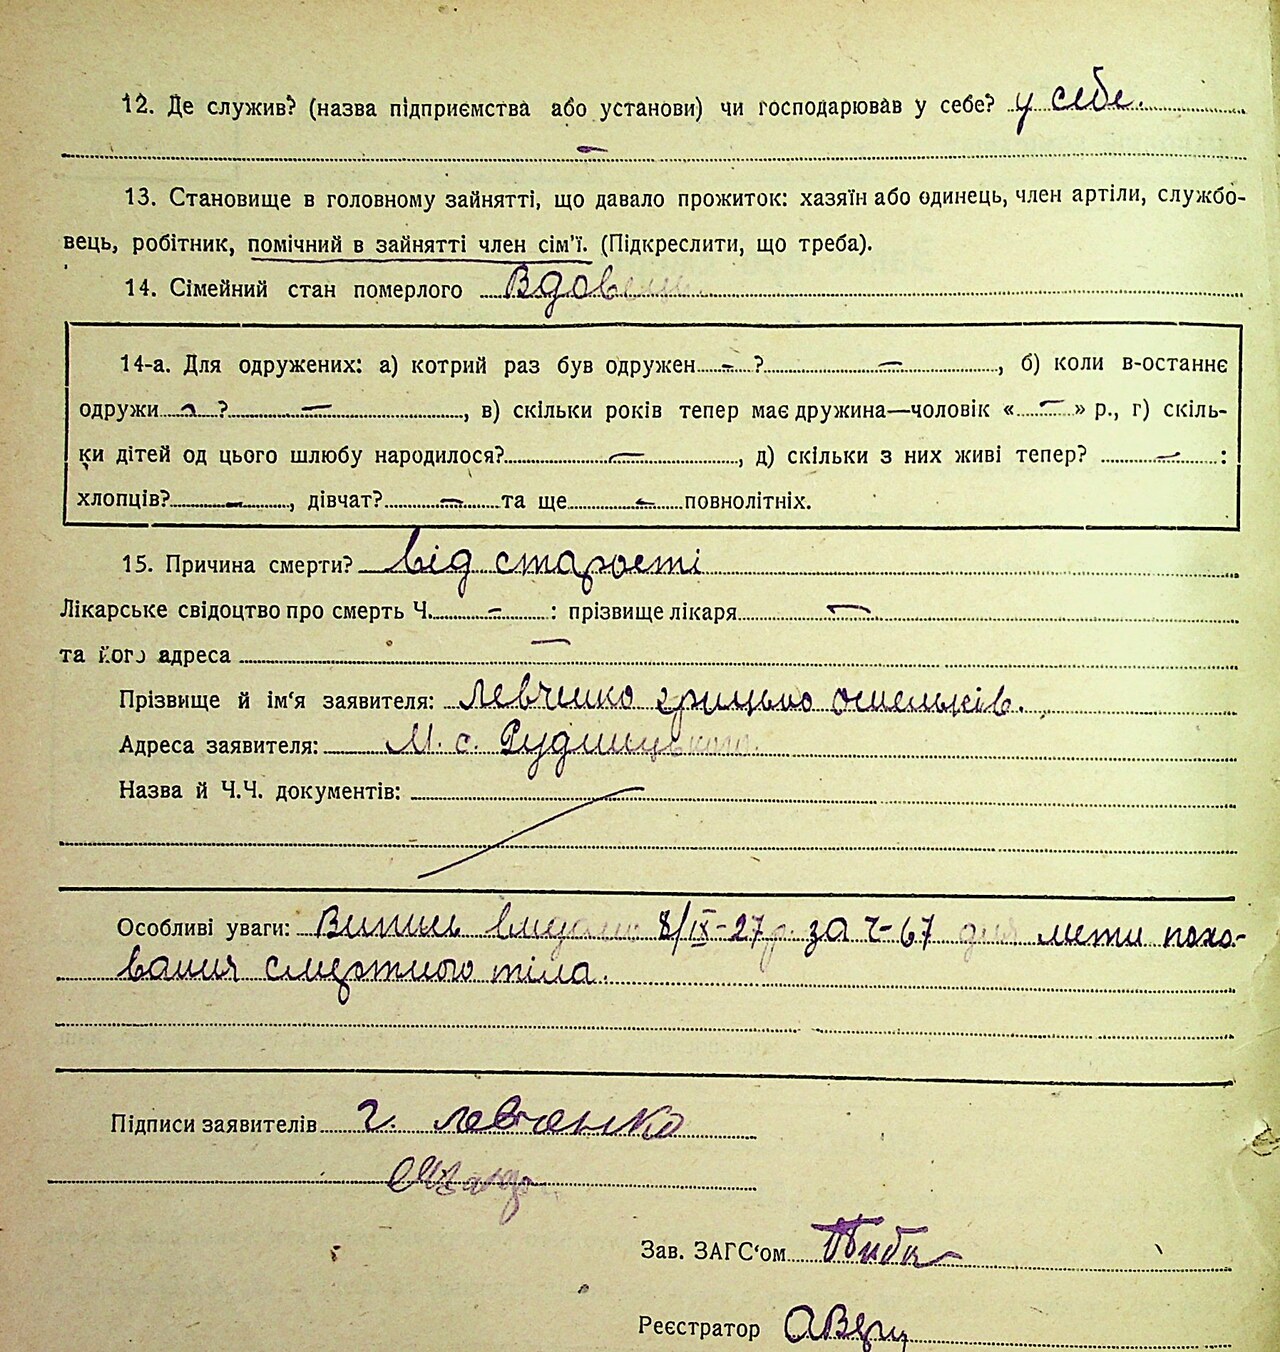 12. Де служив? (назва підприємства або установи) чи господарював у себе? у себе.
–
13. Становище в головному зайнятті, що давало прожиток: хазяїн або одинець, член артіли, службо-
вець, робітник, помічний в зайнятті член сім'ї. (Підкреслити, що треба).
14. Сімейний стан померлого Вдовець.
14-а. Для одружених: а) котрий раз був одружен – ? –, б) коли в-останнє
одружи – ? –, в) скільки років тепер має дружина—чоловік « – » р., г) скіль-
ки дітей од цього шлюбу народилося? –, д) скільки з них живі тепер? – :
хлопців? –, дівчат? – та ще – повнолітніх.
15. Причина смерти? від старости
Лікарське свідоцтво про смерть Ч. – : прізвище лікаря –
та його адреса –
Прізвище й ім'я заявителя: Левченко Грицько
Адреса заявителя: М. с. Рудницького.
Назва й Ч.Ч. документів:
Особливі уваги: Витяг видано 8/ІХ-27 р. за ч-67 для мети похо-
вання смертного тіла.
Підписи заявителів Г. Левченко
Зав. ЗАГС'ом
Реєстратор